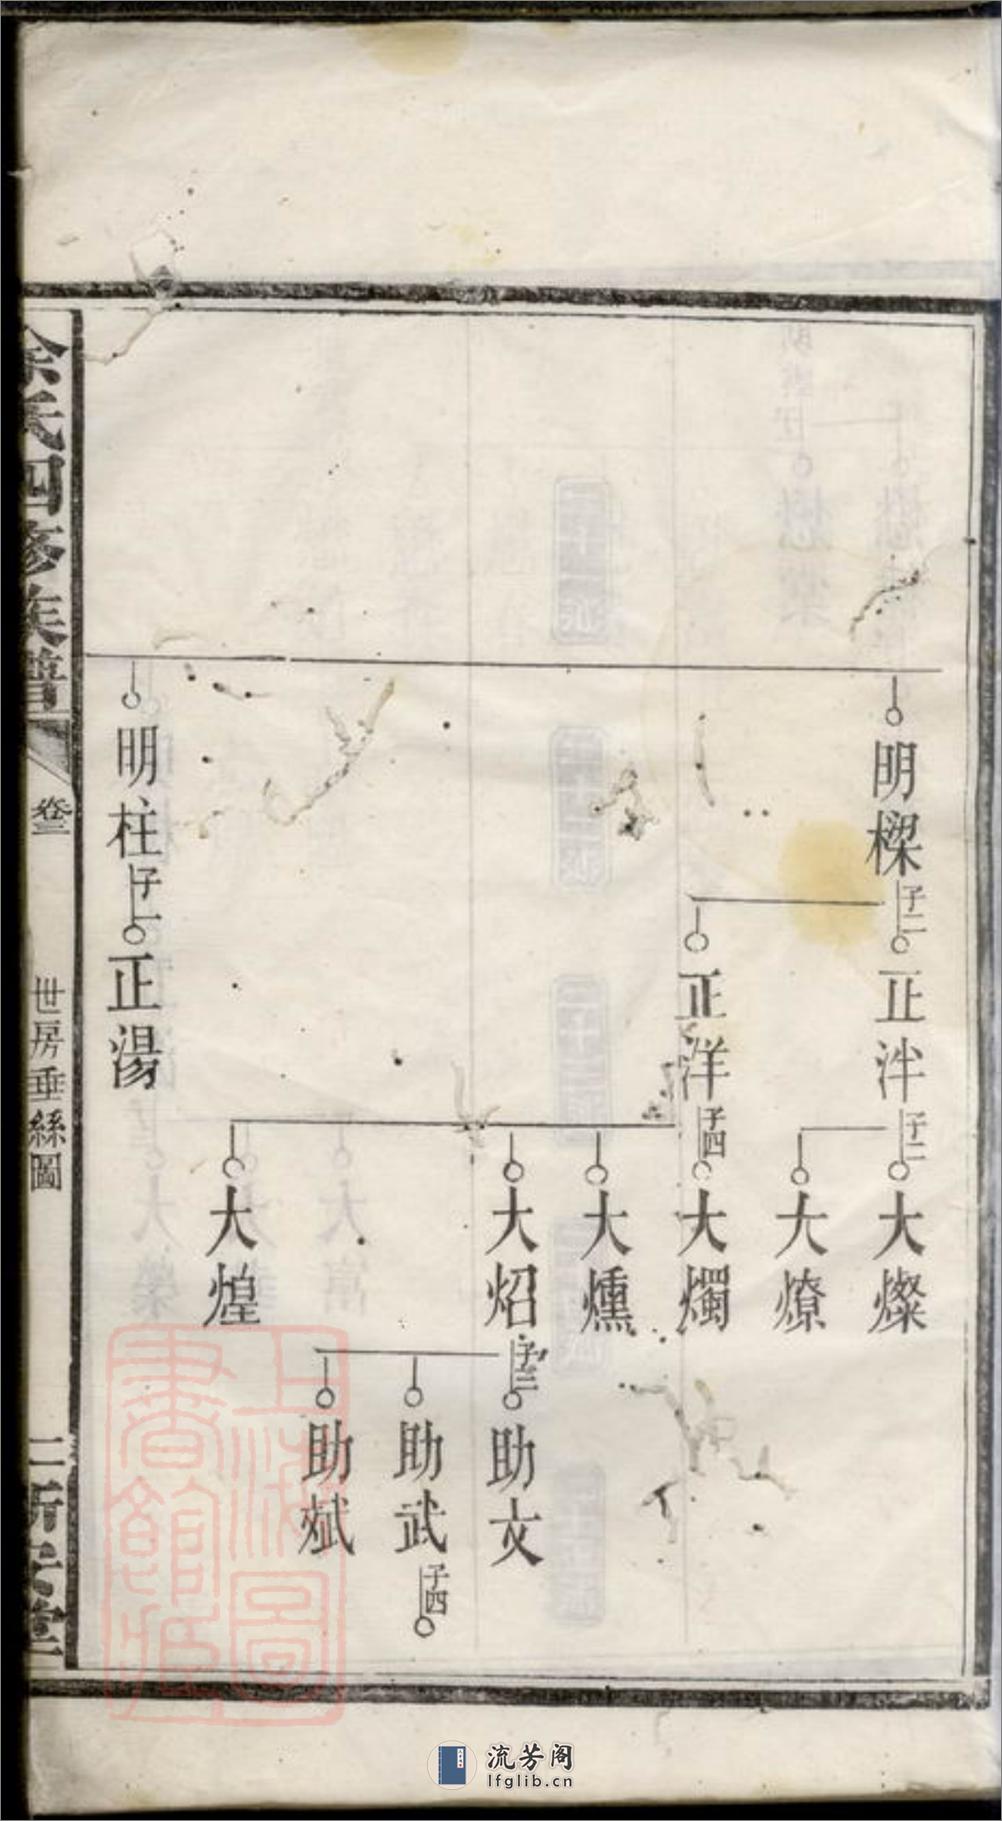 明樑
子二
正泮
子二
大燦
大燎
正洋
子四
大燭
大燻
大炤
子三
助文
助武
子四
助斌
大煌
明柱
子一
正湯
余氏四修族譜
卷三
世房垂絲圖
新安堂
上海圖書館藏
流芳阁
lfglib.cn